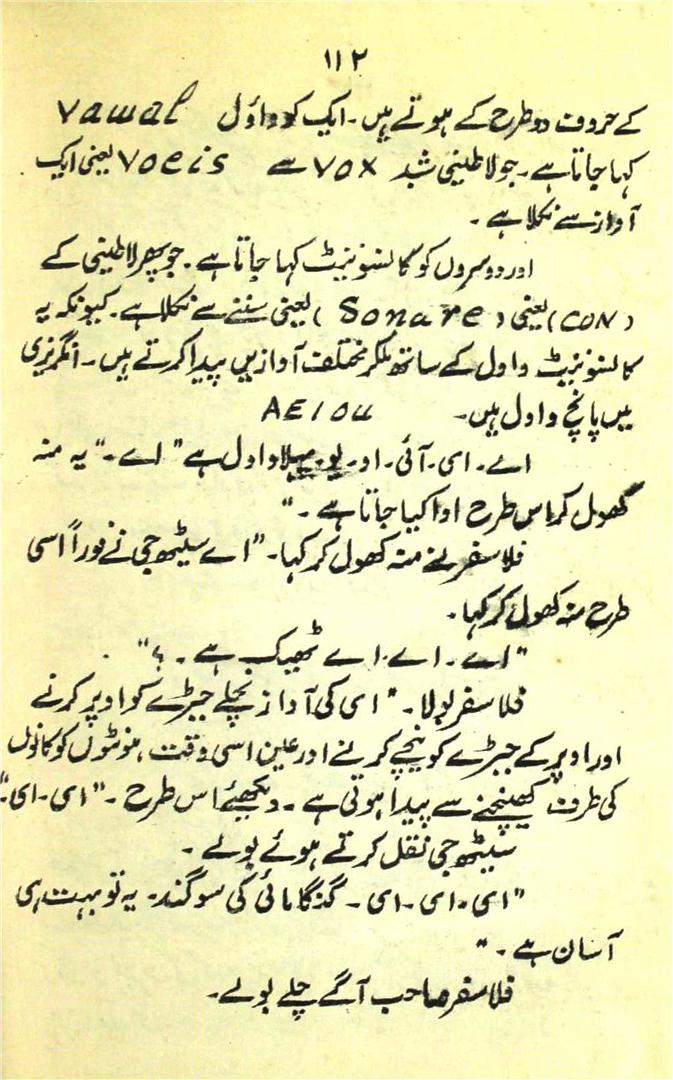 ۱۱۲
کے حروف دو طرح کے ہوتے ہیں۔ ایک کو واؤل Vawal
کہا جاتا ہے۔ جو لاطینی شبد VOX سے Voeis یعنی ایک
آواز سے نکلا ہے۔
اور دوسروں کو کانسونینٹ کہا جاتا ہے۔ جو پھر لاطینی کے
(CON) یعنی (Sonare) یعنی سننے سے نکلا ہے۔ کیونکہ یہ
کانسونینٹ واول کے ساتھ ملکر مختلف آوازیں پیدا کرتے ہیں۔ انگریزی
میں پانچ واول ہیں۔ AEIOU
اے۔ ای۔ آئی۔ او۔ یو۔ پہلا واول ہے "اے۔" یہ منہ
کھول کر اس طرح ادا کیا جاتا ہے۔"
فلاسفر نے منہ کھول کر کہا۔ "اے سیٹھ جی نے فوراً اسی
طرح منہ کھول کر کہا۔
"اے۔ اے۔ اے ٹھیک ہے۔ ؟"
فلاسفر بولا۔ "ای کی آواز نچلے جبڑے کو اوپر کرنے
اور اوپر کے جبڑے کو نیچے کرنے اور عین اسی وقت ہونٹوں کو کانوں
کی طرف کھینچنے سے پیدا ہوتی ہے۔ دیکھئے اس طرح۔ "ای۔ ای۔"
سیٹھ جی نقل کرتے ہوئے بولے۔
"ای۔ ای۔ ای۔ گنگا مائی کی سوگند۔ یہ تو بہت ہی
آسان ہے۔"
فلاسفر صاحب آگے چلے بولے۔